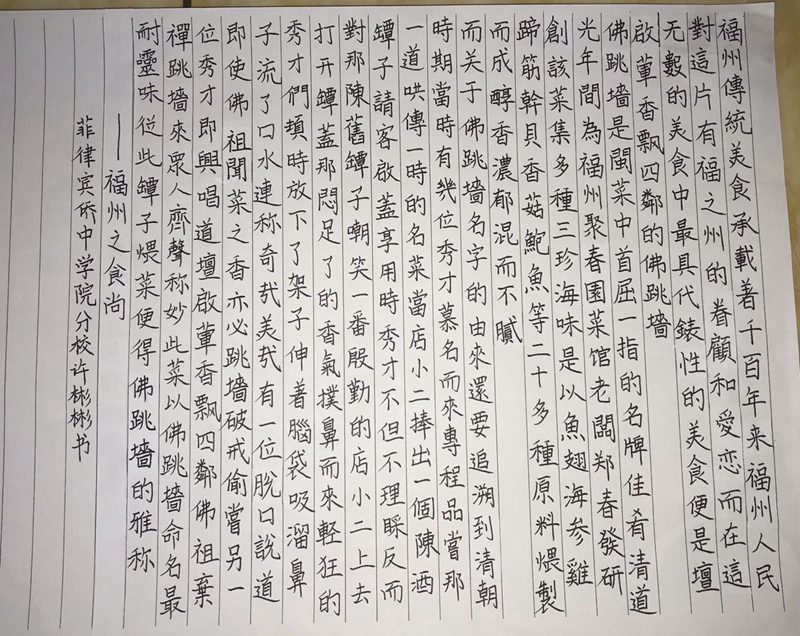 福州傳統美食承載著千百年来福州人民
對這片有福之州的眷顧和愛恋而在這
无數的美食中最具代錶性的美食便是壇
啟葷香飄四鄰的佛跳墻
佛跳墻是閩菜中首屈一指的名牌佳肴清道
光年間為福州聚春園菜馆老闆郑春發研
創該菜集多種三珍海味是以魚翅海参雞
蹄筋幹貝香菇鮑魚等二十多種原料煨製
而成醇香濃郁混而不膩
而关于佛跳墻名字的由來還要追溯到清朝
時期當時有幾位秀才慕名而來專程品嘗那
一道哄傳一時的名菜當店小二捧出一個陳酒
罈子請客啟蓋享用時秀才不但不理睬反而
對那陳舊罈子嘲笑一番殷勤的店小二上去
打开罈蓋那悶足了的香氣撲鼻而來輕狂的
秀才們頓時放下了架子伸着腦袋吸溜鼻
子流了口水連称奇哉美哉有一位脫口說道
即使佛祖聞菜之香亦必跳墻破戒偷嘗另一
位秀才即興唱道壇啟葷香飄四鄰佛祖棄
禪跳墻來眾人齊聲称妙此菜以佛跳墻命名最
耐靈味從此罈子煨菜便得佛跳墻的雅称
——福州之食尚
菲律宾侨中学院分校许彬彬书